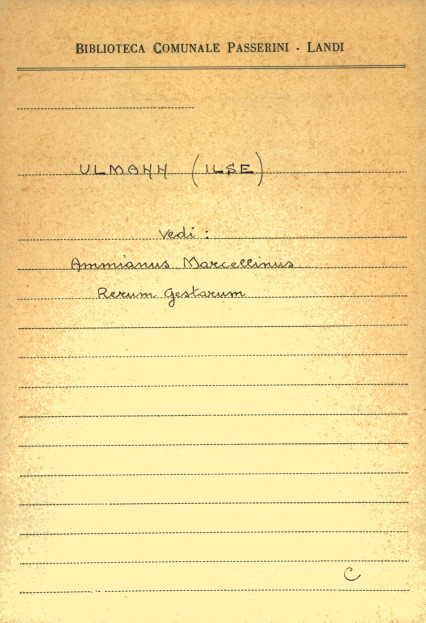 BIBLIOTECA COMUNALE PASSERINI - LANDI
ULMANN (ILSE)
Vedi :
Ammianus Marcellinus
Rerum Gestarum
C